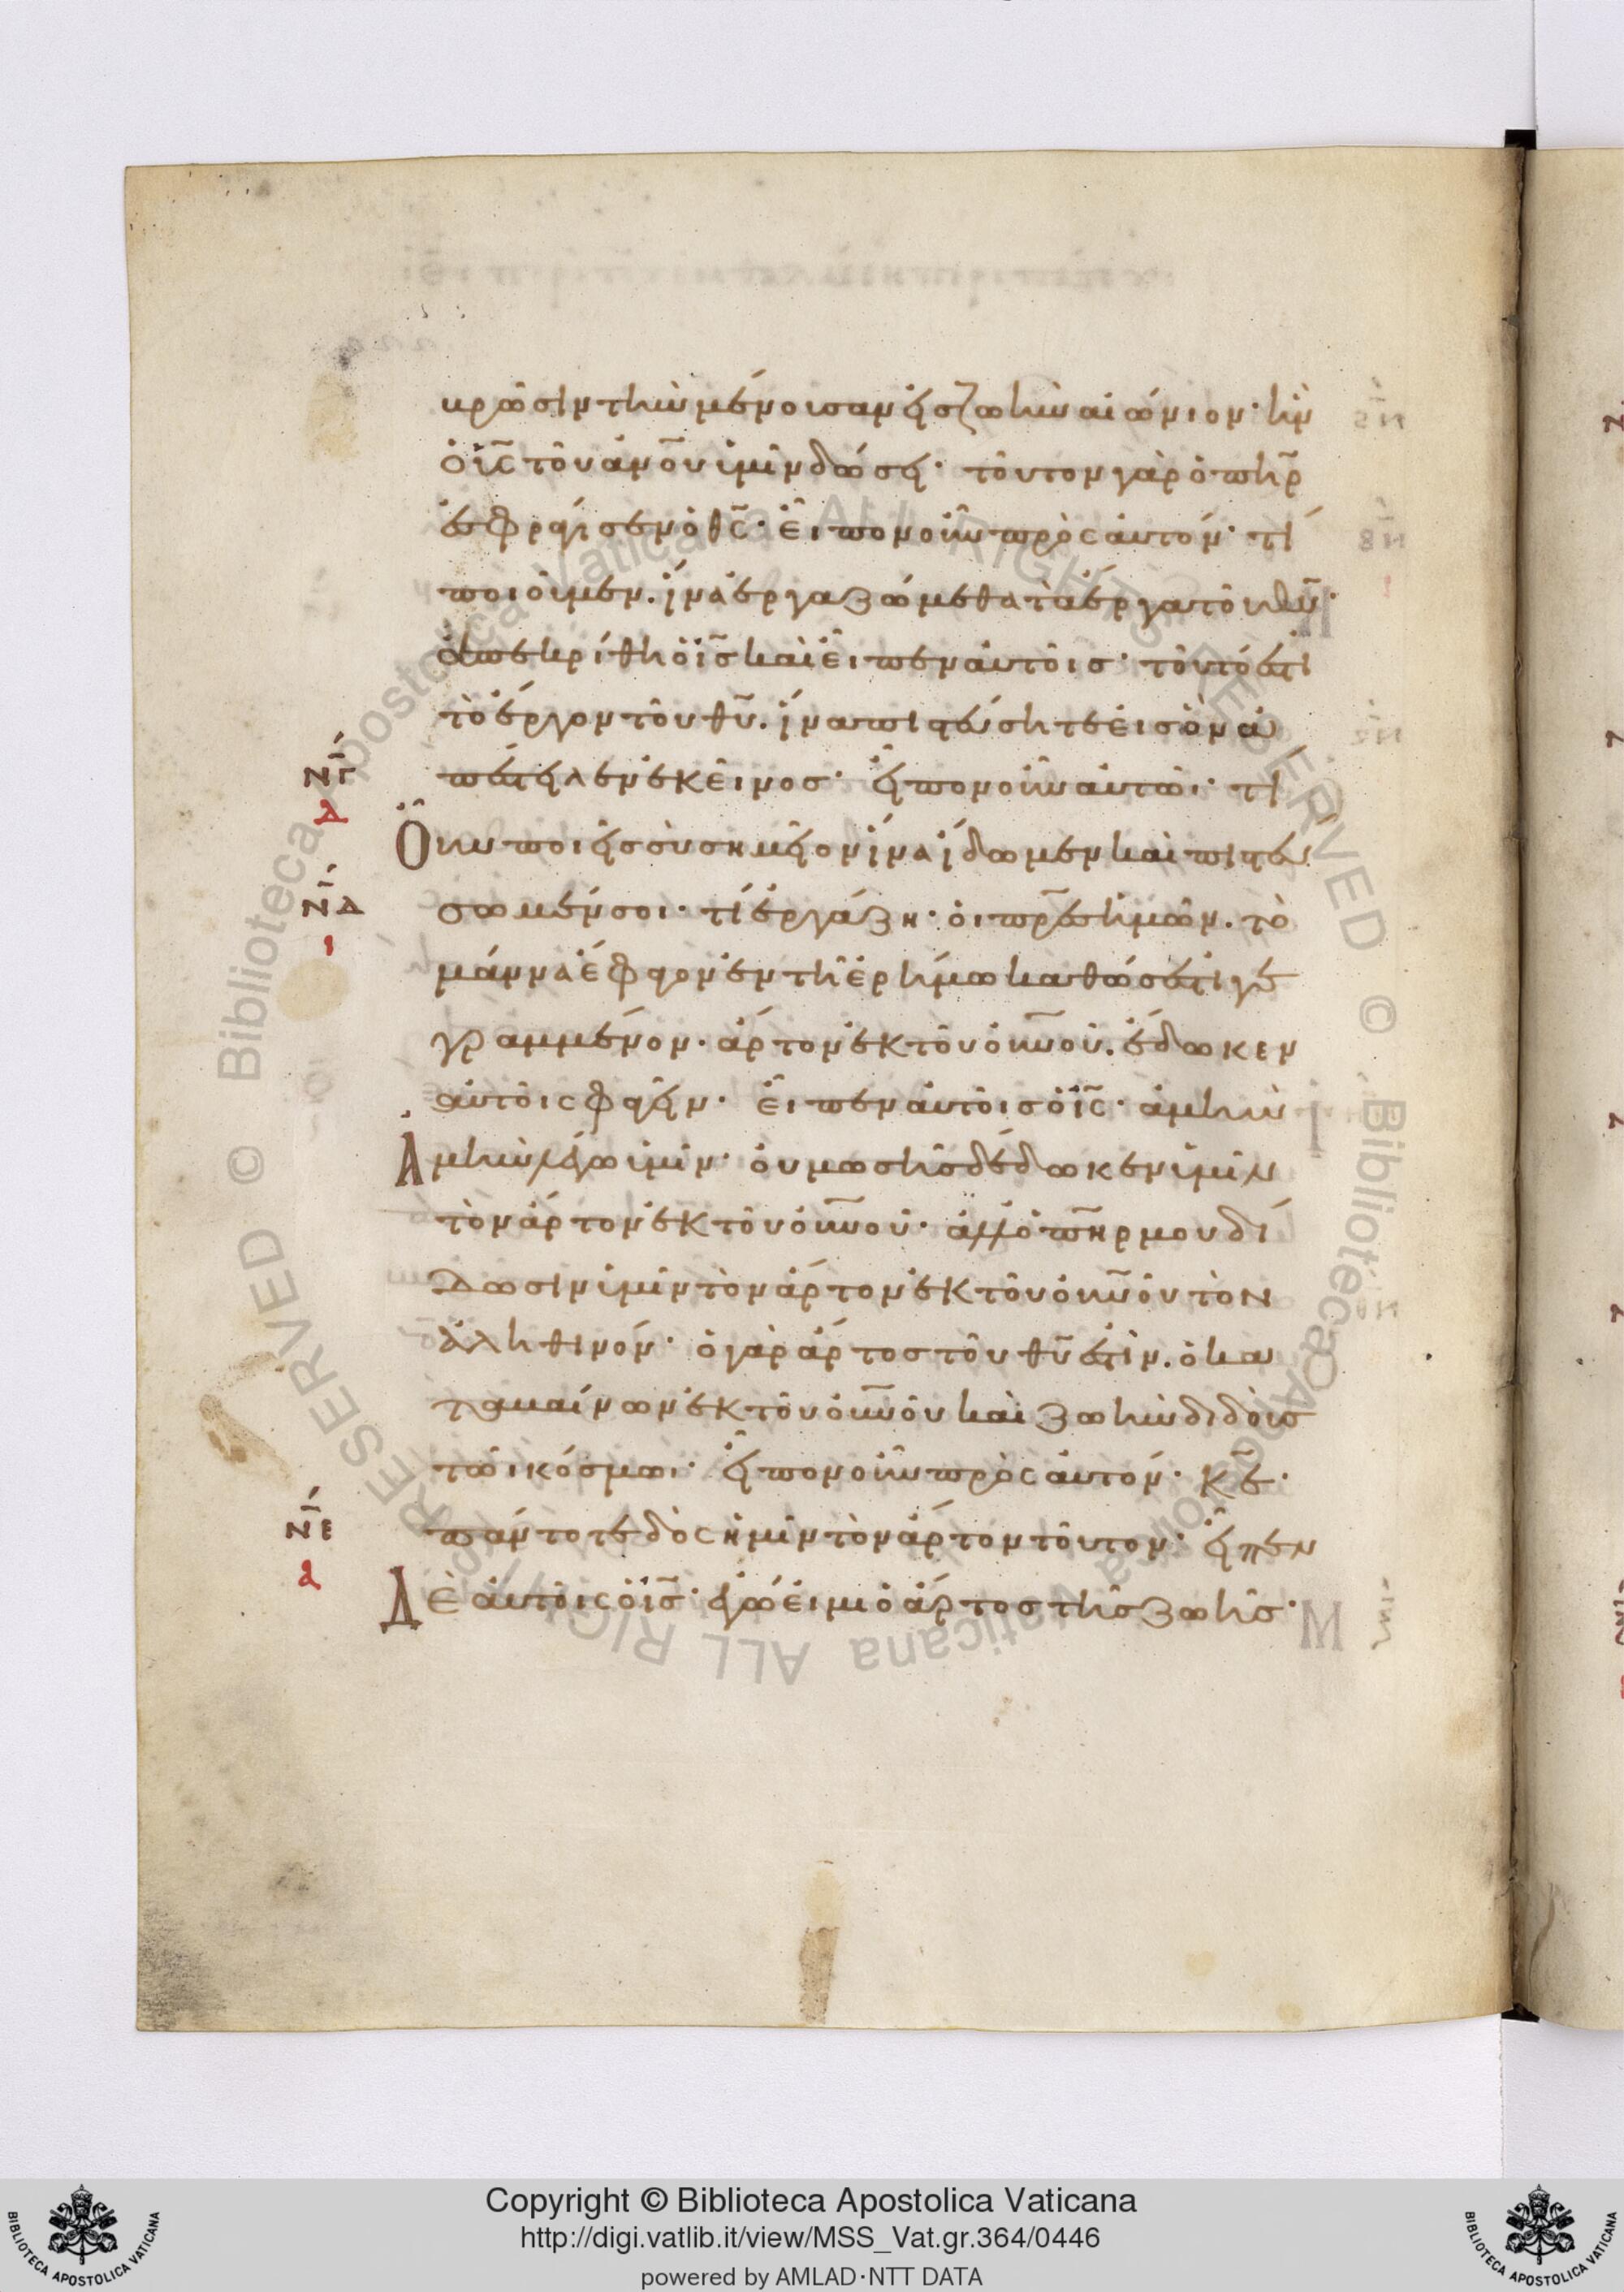 βρῶσιν τὴν μένουσαν εἰς ζωὴν αἰώνιον· ἣν
ὁ υἱς τοῦ ἀνου ὑμῖν δώσει· τοῦτον γὰρ ὁ πηρ
ἐσφράγισεν ὁ θς· εἶπον οὖν πρὸς αὐτόν· τί
ποιοῦμεν. ἵνα ἐργαζώμεθα τὰ ἔργα τοῦ θυ·
ἀπεκρίθη ὁ ις καὶ εἶπεν αὐτοῖς· τοῦτό ἐστι
τὸ ἔργον τοῦ θυ. ἵνα πιστεύσητε εἰς ὃν ἀ
πέστειλεν ἐκεῖνος· εἶπον οὖν αὐτῶι· τί
ΝΓ
Δ
Οὖν ποιεῖς σὺ σημεῖον ἵνα ἴδωμεν καὶ πιστεύ
ΝΔ
Ι
σωμέν σοι· τί ἐργάζη· οἱ πρες ἡμῶν. τὸ
μάννα ἔφαγον ἐν τῆ ἐρήμω καθώς ἐστι γε
γραμμένον· ἄρτον ἐκ τοῦ οὐνου. ἔδωκεν
αὐτοῖς φαγεῖν· εἶπεν αὐτοῖς ὁ ις· ἀμὴν
Ἀμὴν λέγω ὑμῖν· οὐ μωσῆς δέδωκεν ὑμῖν
τὸν ἄρτον ἐκ τοῦ οὐνου· ἀλλ' ὁ πηρ μου δί
δωσιν ὑμῖν τὸν ἄρτον ἐκ τοῦ οὐνου τὸν
ἀληθινόν· ὁ γὰρ ἄρτος τοῦ θυ ἐστὶν. ὁ κα
ταβαίνων ἐκ τοῦ οὐνου καὶ ζωὴν διδοὺς
τῶι κόσμωι· εἶπον οὖν πρὸς αὐτόν· κε·
ΝΕ
Α
πάντοτε δὸς ἡμῖν τὸν ἄρτον τοῦτον· εἶπεν
Δὲ αὐτοῖς ὁ ις· ἐγώ εἰμι ὁ ἄρτος τῆς ζωῆς·
Copyright © Biblioteca Apostolica Vaticana
http://digi.vatlib.it/view/MSS_Vat.gr.364/0446
powered by AMLAD·NTT DATA